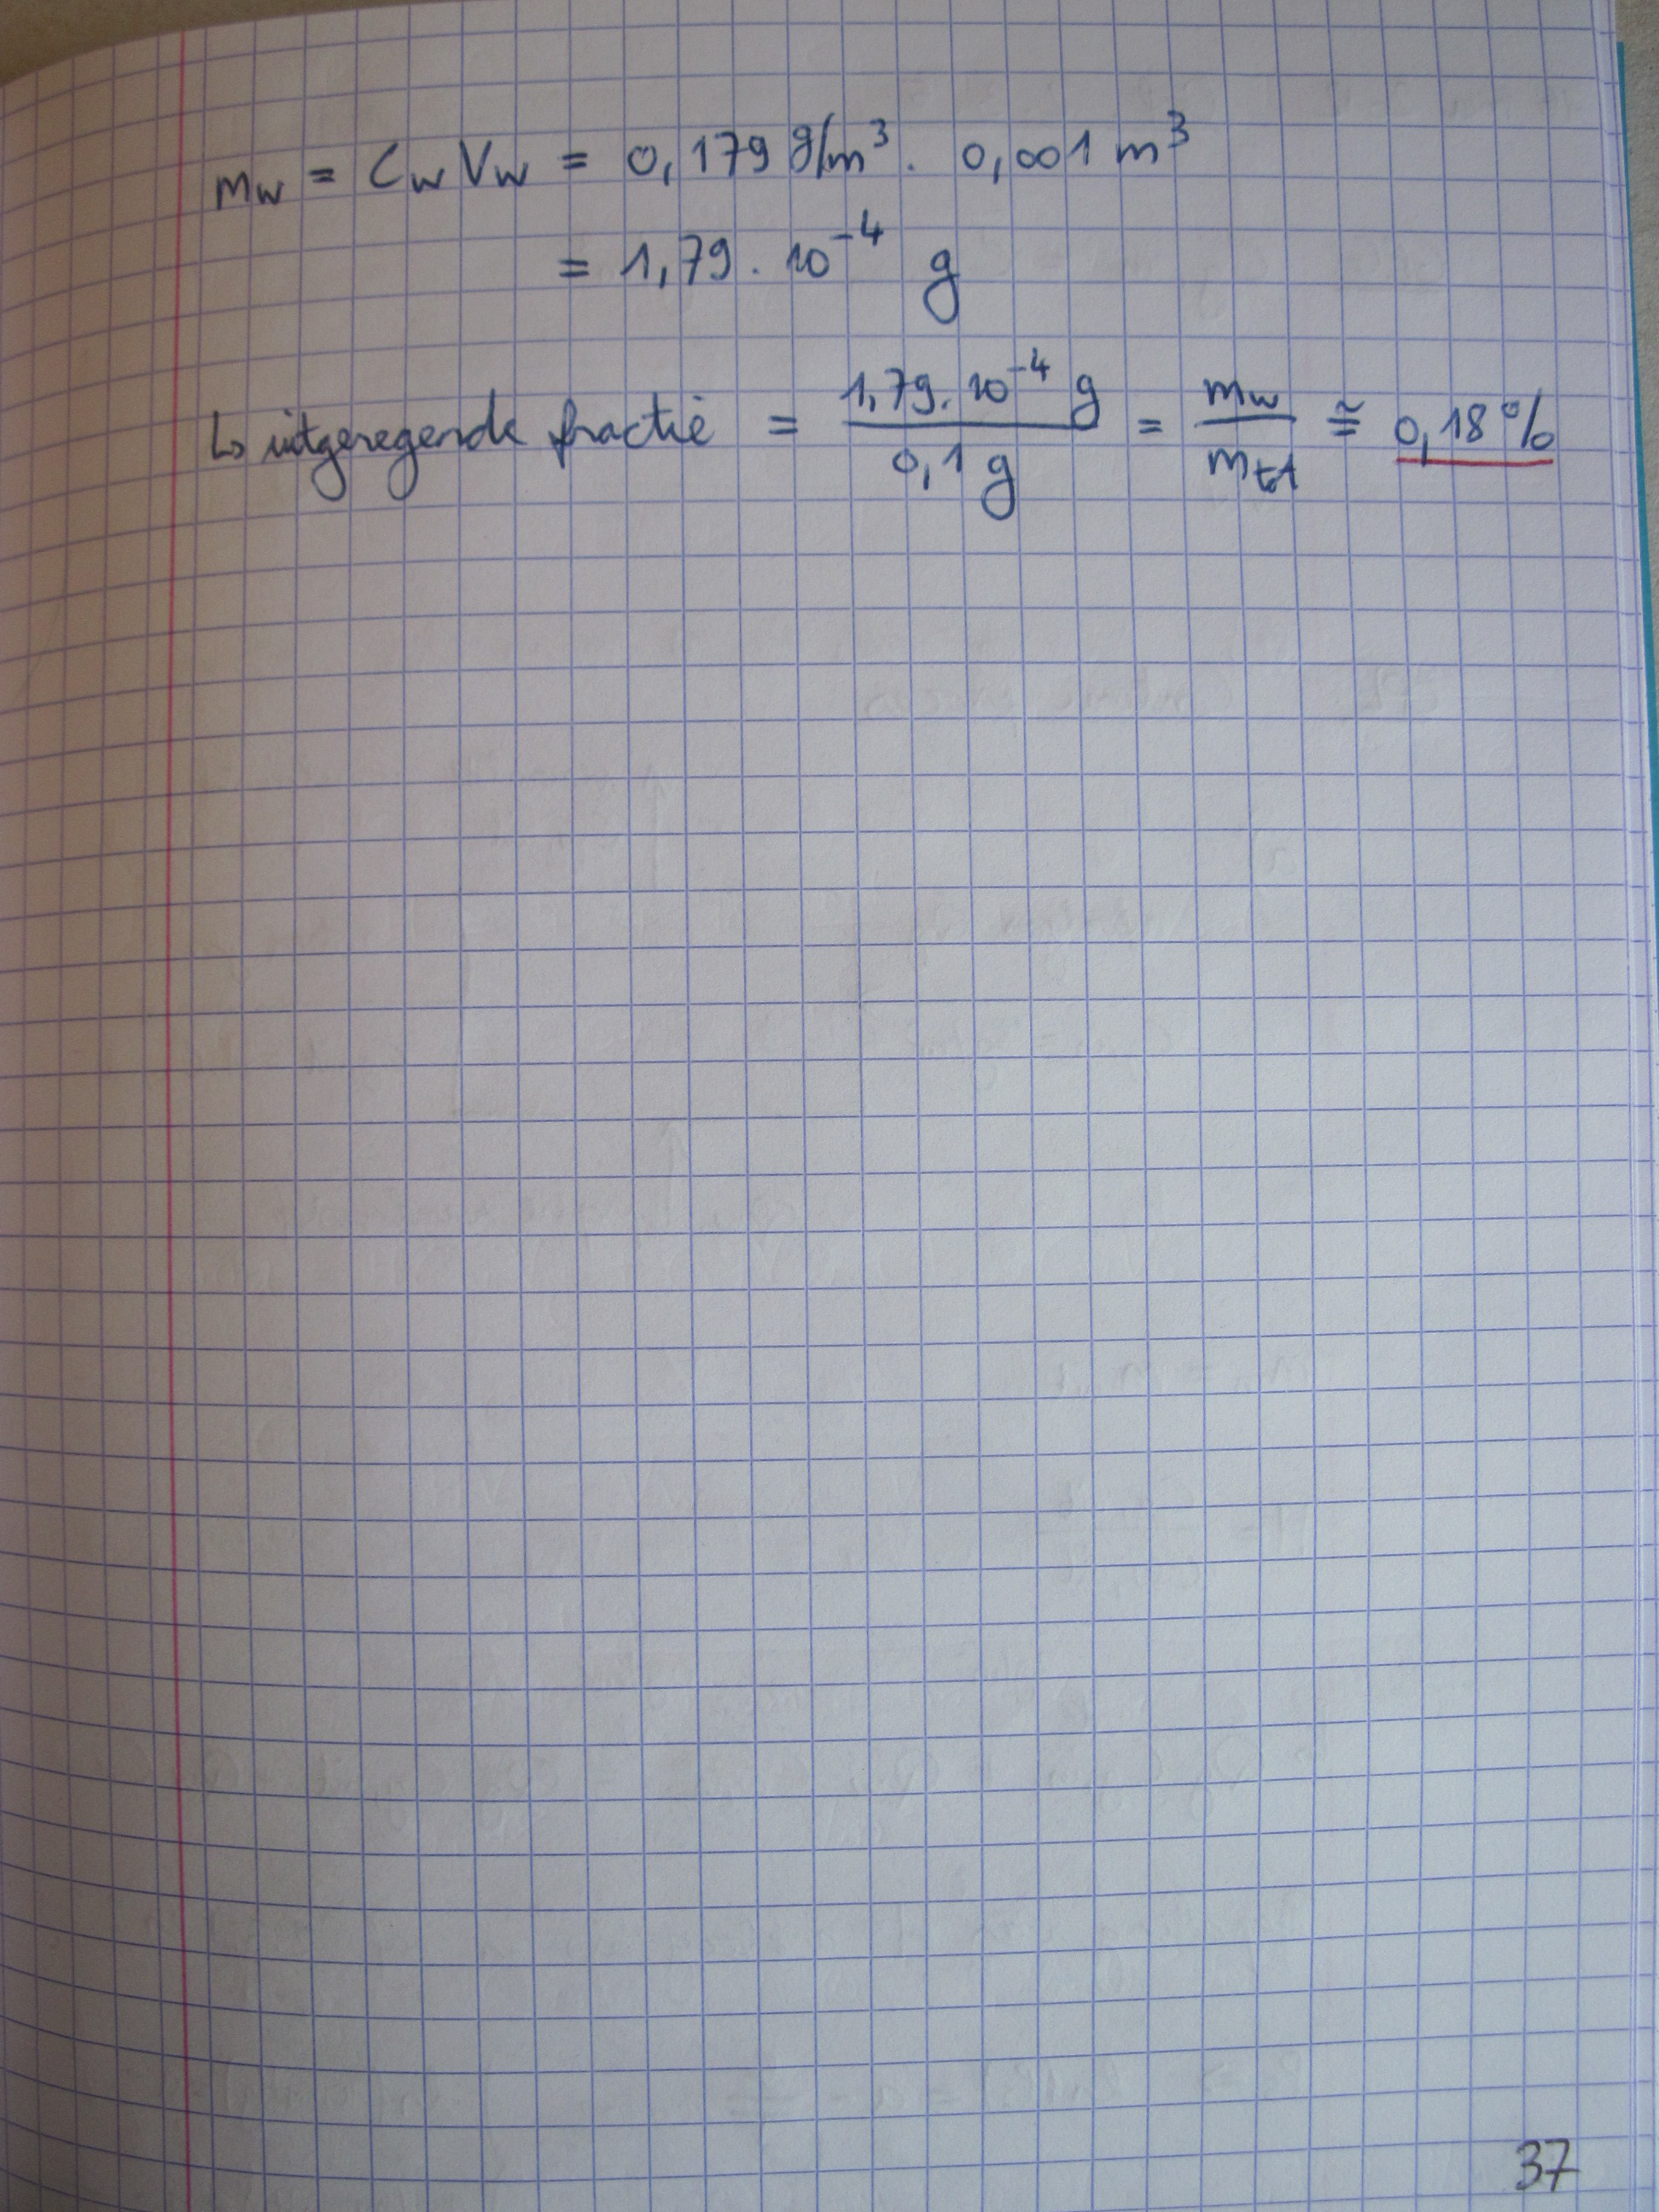 m_w = C_w V_w = 0,179 g/m³ . 0,001 m³
= 1,79 . 10⁻⁴ g
↳ uitgeregende fractie = 1,79 . 10⁻⁴ g / 0,1 g = m_w / m_tot ≅ 0,18 %
37